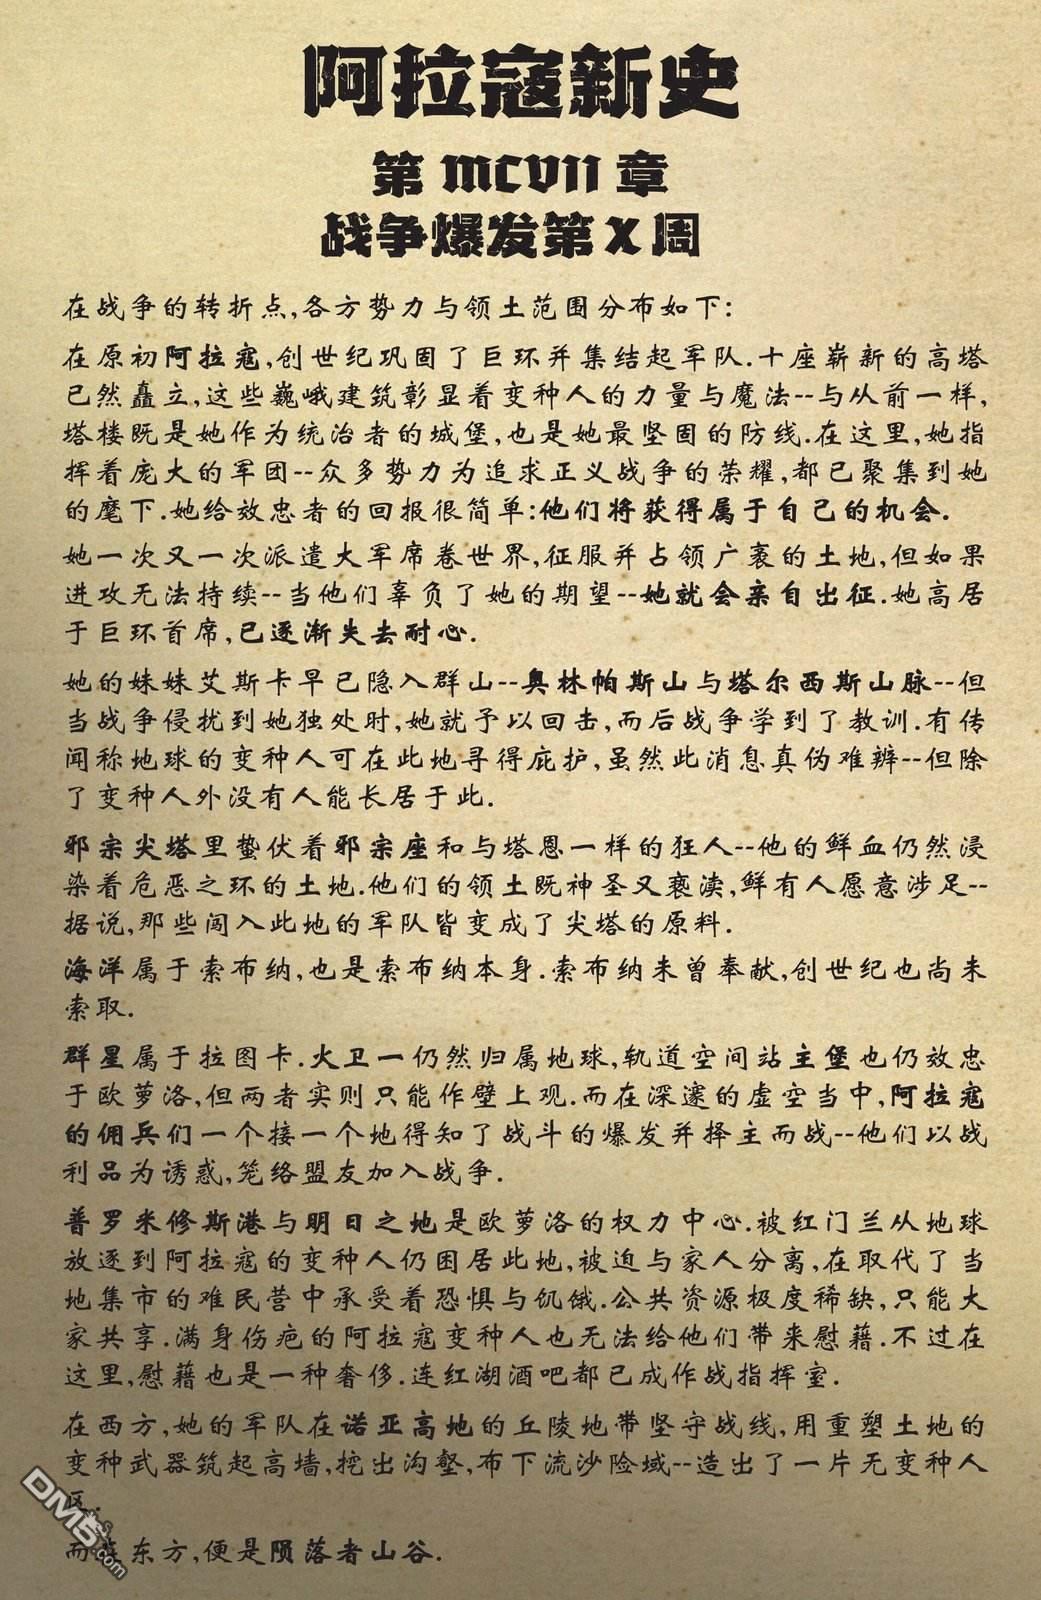 阿拉寇新史
第 MCVII 章
战争爆发第 X 周
在战争的转折点,各方势力与领土范围分布如下:
在原初阿拉寇,创世纪巩固了巨环并集结起军队.十座崭新的高塔
已然矗立,这些巍峨建筑彰显着变种人的力量与魔法--与从前一样,
塔楼既是她作为统治者的城堡,也是她最坚固的防线.在这里,她指
挥着庞大的军团--众多势力为追求正义战争的荣耀,都已聚集到她
的麾下.她给效忠者的回报很简单:他们将获得属于自己的机会.
她一次又一次派遣大军席卷世界,征服并占领广袤的土地,但如果
进攻无法持续--当他们辜负了她的期望--她就会亲自出征.她高居
于巨环首席,已逐渐失去耐心.
她的妹妹艾斯卡早已隐入群山--奥林帕斯山与塔尔西斯山脉--但
当战争侵扰到她独处时,她就予以回击,而后战争学到了教训.有传
闻称地球的变种人可在此地寻得庇护,虽然此消息真伪难辨--但除
了变种人外没有人能长居于此.
邪宗尖塔里蛰伏着邪宗座和与塔恩一样的狂人--他的鲜血仍然浸
染着危恶之环的土地.他们的领土既神圣又亵渎,鲜有人愿意涉足--
据说,那些闯入此地的军队皆变成了尖塔的原料.
海洋属于索布纳,也是索布纳本身.索布纳未曾奉献,创世纪也尚未
索取.
群星属于拉图卡.火卫一仍然归属地球,轨道空间站主堡也仍效忠
于欧萝洛,但两者实则只能作壁上观.而在深邃的虚空当中,阿拉寇
的佣兵们一个接一个地得知了战斗的爆发并择主而战--他们以战
利品为诱惑,笼络盟友加入战争.
普罗米修斯港与明日之地是欧萝洛的权力中心.被红门兰从地球
放逐到阿拉寇的变种人仍困居此地,被迫与家人分离,在取代了当
地集市的难民营中承受着恐惧与饥饿.公共资源极度稀缺,只能大
家共享.满身伤疤的阿拉寇变种人也无法给他们带来慰藉.不过在
这里,慰藉也是一种奢侈.连红湖酒吧都已成作战指挥室.
在西方,她的军队在诺亚高地的丘陵地带坚守战线,用重塑土地的
变种武器筑起高墙,挖出沟壑,布下流沙险域--造出了一片无变种人
区.
而在东方,便是陨落者山谷.
DM5.com